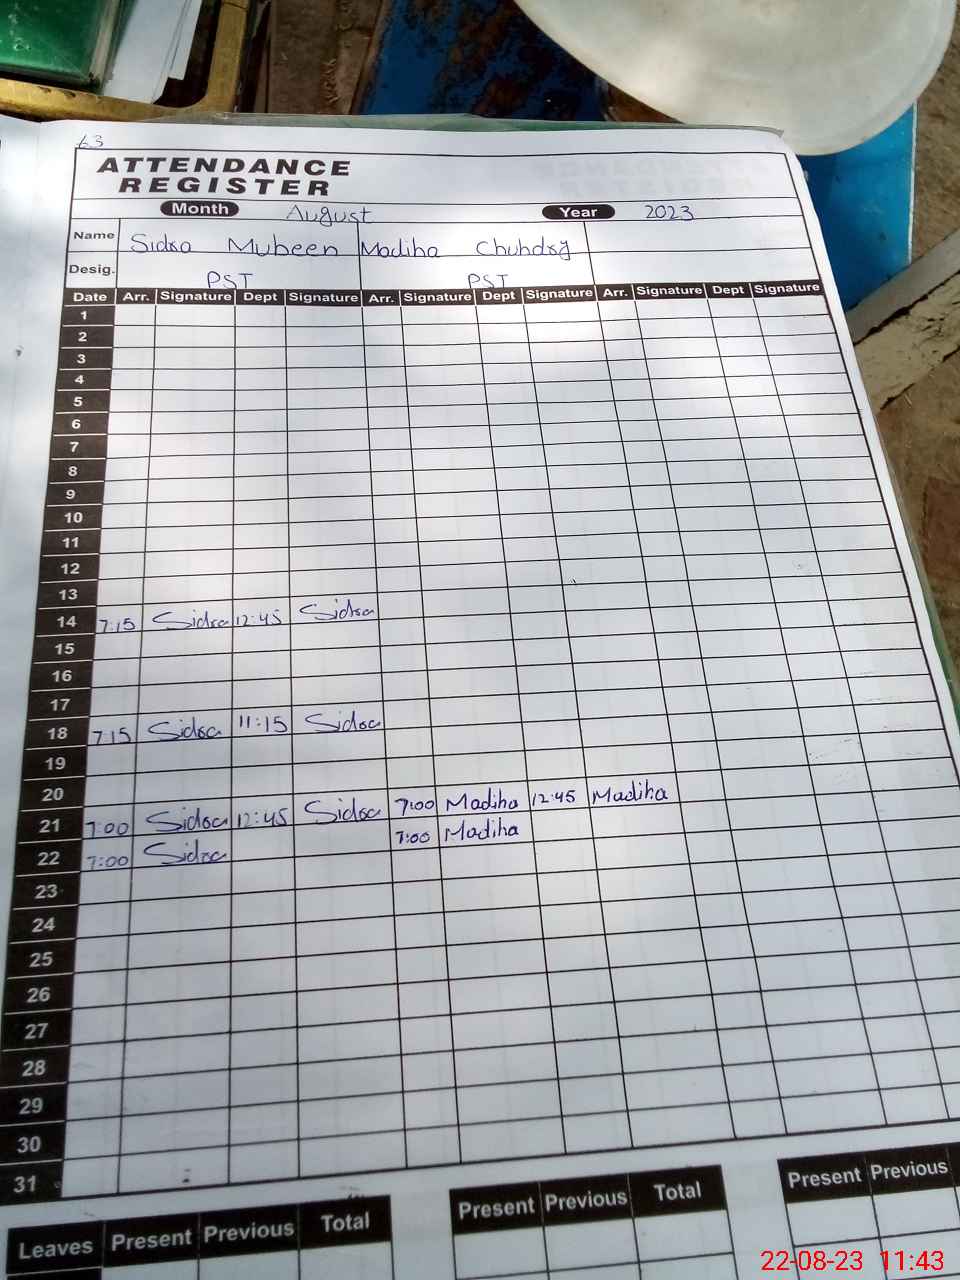 63
ATTENDANCE
REGISTER
Month August Year 2023
Name Sidra Mubeen Madiha Chuhdry
Desig. PST PST
Date Arr. Signature Dept Signature Arr. Signature Dept Signature Arr. Signature Dept Signature
1
2
3
4
5
6
7
8
9
10
11
12
13
14 7:15 Sidra 12:45 Sidra
15
16
17
18 7:15 Sidra 11:15 Sidra
19
20
21 7:00 Sidra 12:45 Sidra 7:00 Madiha 12:45 Madiha
22 7:00 Sidra 7:00 Madiha
23
24
25
26
27
28
29
30
31
Leaves Present Previous Total Present Previous Total Present Previous
22-08-23 11:43